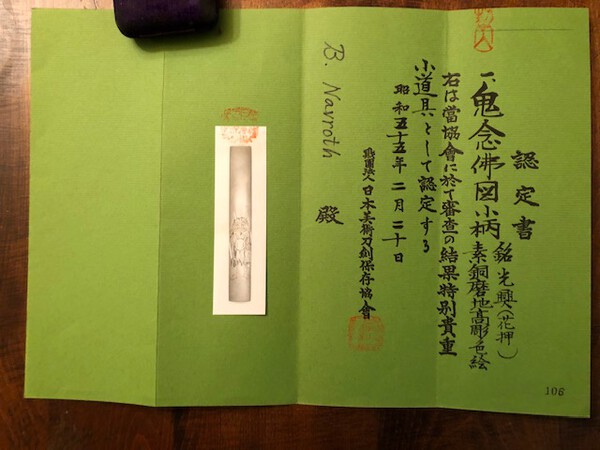 認定書
一、鬼念佛図小柄
銘 光興(花押)
素銅磨地高彫色絵
右は當協會に於て審査の結果特別貴重
小道具として認定する
昭和五十五年二月二十日
財團法人日本美術刀剣保存協會
B. Navroth 殿
106